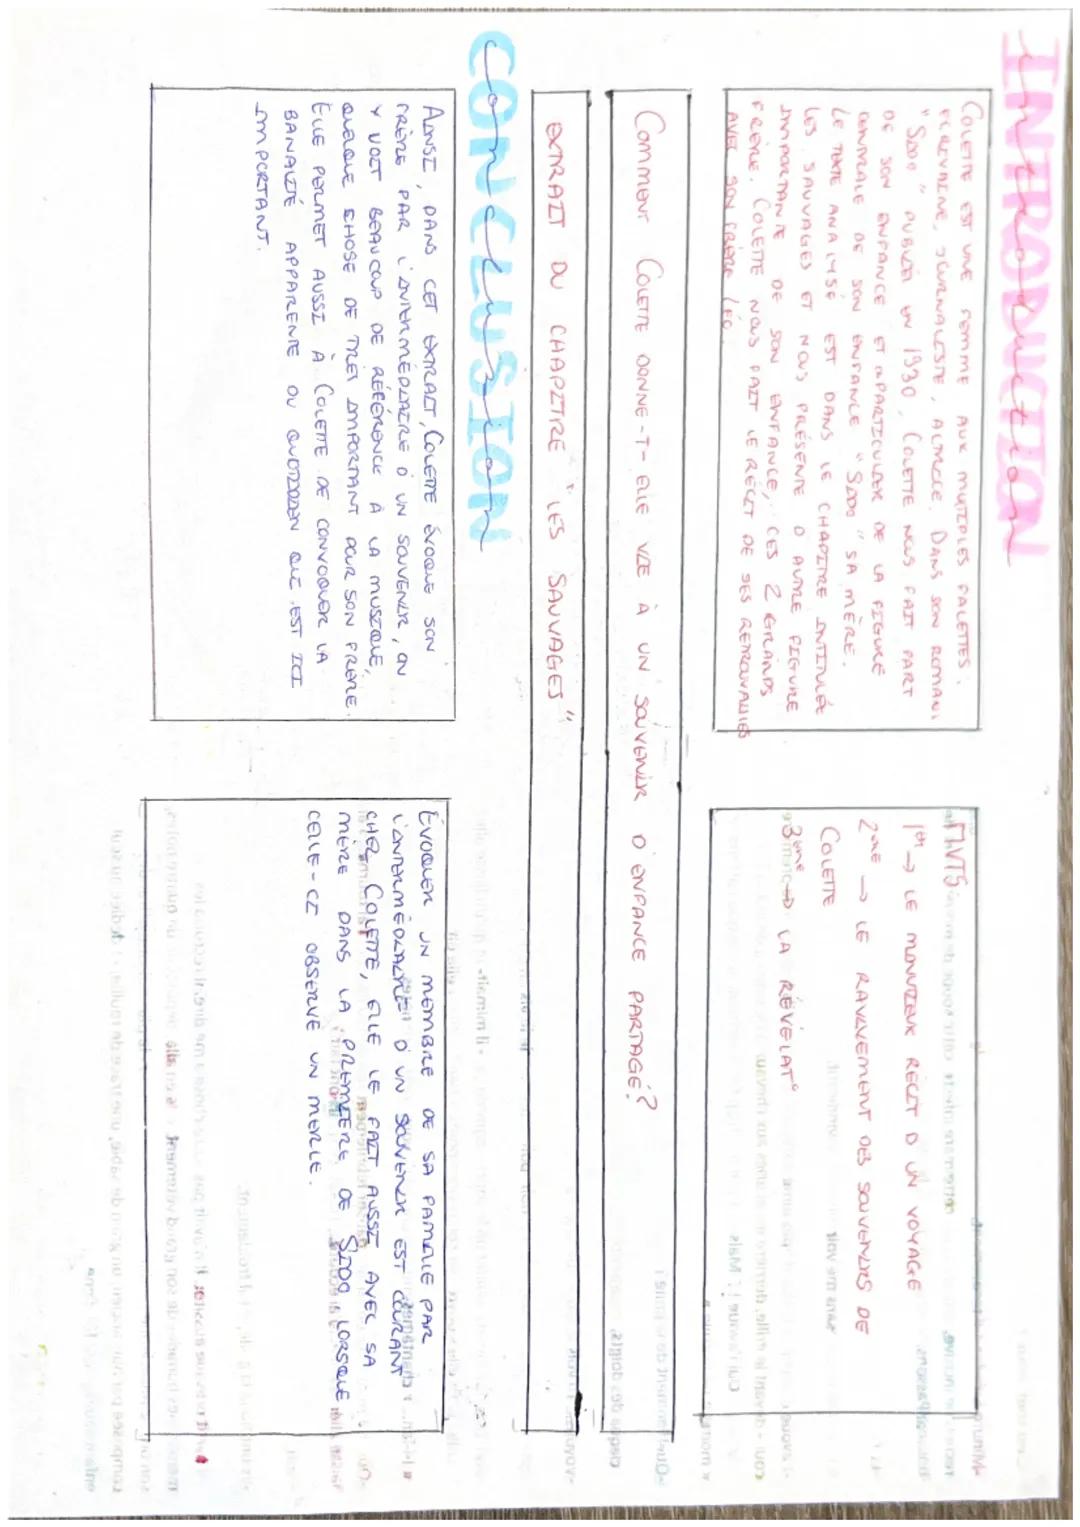 INTRODUCTION
Introduction
COLETTE EST UNE FEMME AUX MULTIPLES FACETTES.
ECRIVAINE, JOURNALISTE, ACTRICE. DANS SON ROMAN
" SIDO " PUBLIÉ EN 1930, COLETTE NOUS FAIT PART
DE SON ENFANCE ET PARTICULIER DE LA FIGURE
CENTRALE DE SON ENFANCE "SIDO" SA MÈRE.
LE TEXTE ANALYSÉ EST DANS LE CHAPITRE INTITULÉE
LES SAUVAGES ET NOUS PRÉSENTE D AUTRE FIGURE
IMPORTANTE DE SON ENFANCE, CES 2 GRANDS
FRÈRE. COLETTE NOUS FAIT LE RÉCIT DE SES RETROUVAILLES
AVEC SON FRÈRE LÉO.
MVTS
1er → LE MONNIEUR RÉCIT D UN VOYAGE
2ème → LE RAVIVEMENT DES SOUVENIRS DE
COLETTE
3ème → LA RÉVÉLAT°
COMMENT COLETTE DONNE-T-ELLE VIE À UN SOUVENIR D'ENFANCE PARTAGÉ?
EXTRAIT DU CHAPITRE "LES SAUVAGES"
CONCLUSION
Conclusion
AINSI, DANS CET EXTRAIT, COLETTE ÉVOQUE SON
FRÈRE PAR L'INTERMÉDIAIRE D'UN SOUVENIR, ON
Y VOIT BEAUCOUP DE RÉFÉRENCE À LA MUSIQUE,
QUELQUE CHOSE DE TRÈS IMPORTANT POUR SON FRÈRE.
ELLE PERMET AUSSI À COLETTE DE CONVOQUER LA
BANALITÉ APPARENTE OU QUOTIDIEN QUI EST ICI
IMPORTANT.
ÉVOQUER UN MEMBRE DE SA FAMILLE PAR
L'INTERMÉDIAIRE D'UN SOUVENIR EST COURANT
CHEZ COLETTE, ELLE LE FAIT AUSSI AVEC SA
MÈRE DANS LA PREMIÈRE DE SIDO LORSQUE
CELLE-CI OBSERVE UN MERLE.